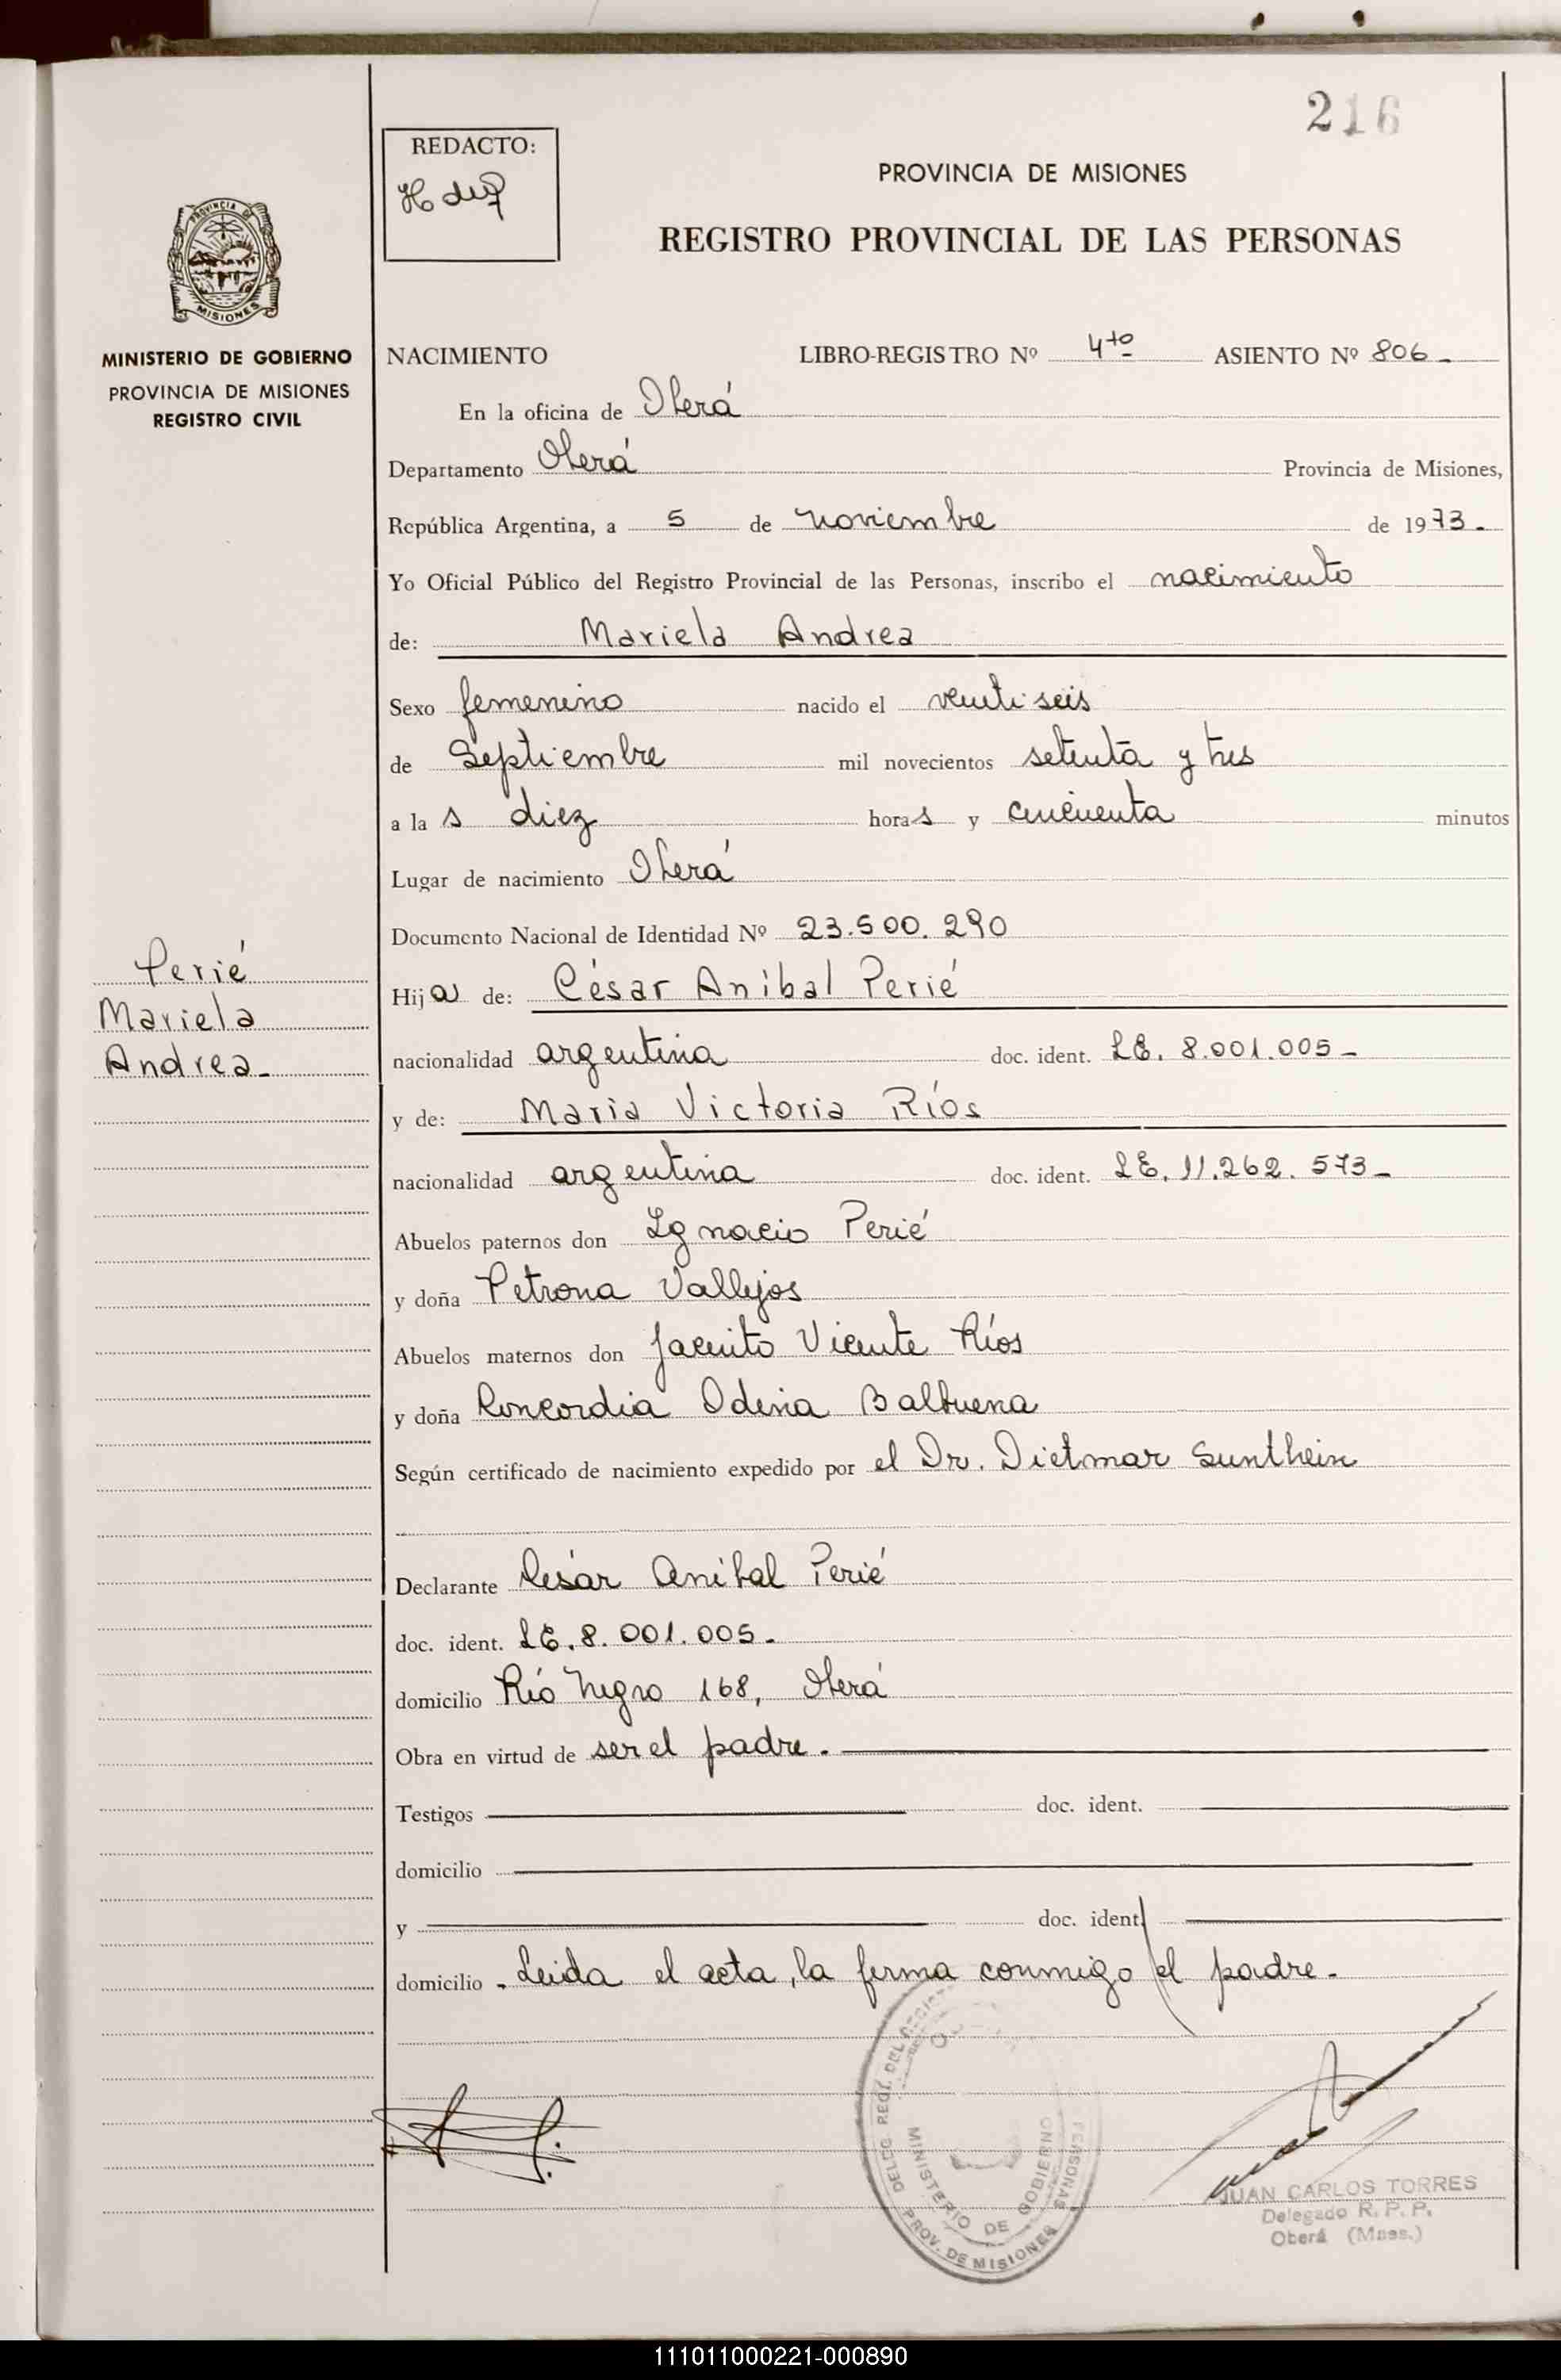 216
REDACTO:
PROVINCIA DE MISIONES
REGISTRO PROVINCIAL DE LAS PERSONAS
PROVINCIA DE
MISIONES
MINISTERIO DE GOBIERNO
PROVINCIA DE MISIONES
REGISTRO CIVIL
NACIMIENTO LIBRO-REGISTRO Nº 4to ASIENTO Nº 806-
En la oficina de Oberá
Departamento Oberá Provincia de Misiones,
República Argentina, a 5 de noviembre de 1973.
Yo Oficial Público del Registro Provincial de las Personas, inscribo el nacimiento
de: Mariela Andrea
Sexo femenino nacido el veintiseis
de Septiembre mil novecientos setenta y tres
a las diez horas y cincuenta minutos
Lugar de nacimiento Oberá
Documento Nacional de Identidad Nº 23.500.290
Perié
Mariela
Andrea-
Hija de: César Anibal Perié
nacionalidad argentina doc. ident. LE. 8.001.005-
y de: Maria Victoria Ríos
nacionalidad argentina doc. ident. LE. 11.262.573-
Abuelos paternos don Ignacio Perié
y doña Petrona Vallejos
Abuelos maternos don Jacinto Vicente Ríos
y doña Concordia Odena Balbuena
Según certificado de nacimiento expedido por el Dr. Dietmar Sunthein
Declarante César Anibal Perié
doc. ident. LE. 8.001.005-
domicilio Río Negro 168, Oberá
Obra en virtud de ser el padre.
Testigos doc. ident.
domicilio
y doc. ident.
domicilio - Leida el acta, la firma conmigo el padre-
DELEG. REGI. DEL PERSONAS
MINISTERIO DE GOBIERNO
PROV. DE MISIONES
JUAN CARLOS TORRES
Delegado R. P. P.
Oberá (Mnes.)
111011000221-000890